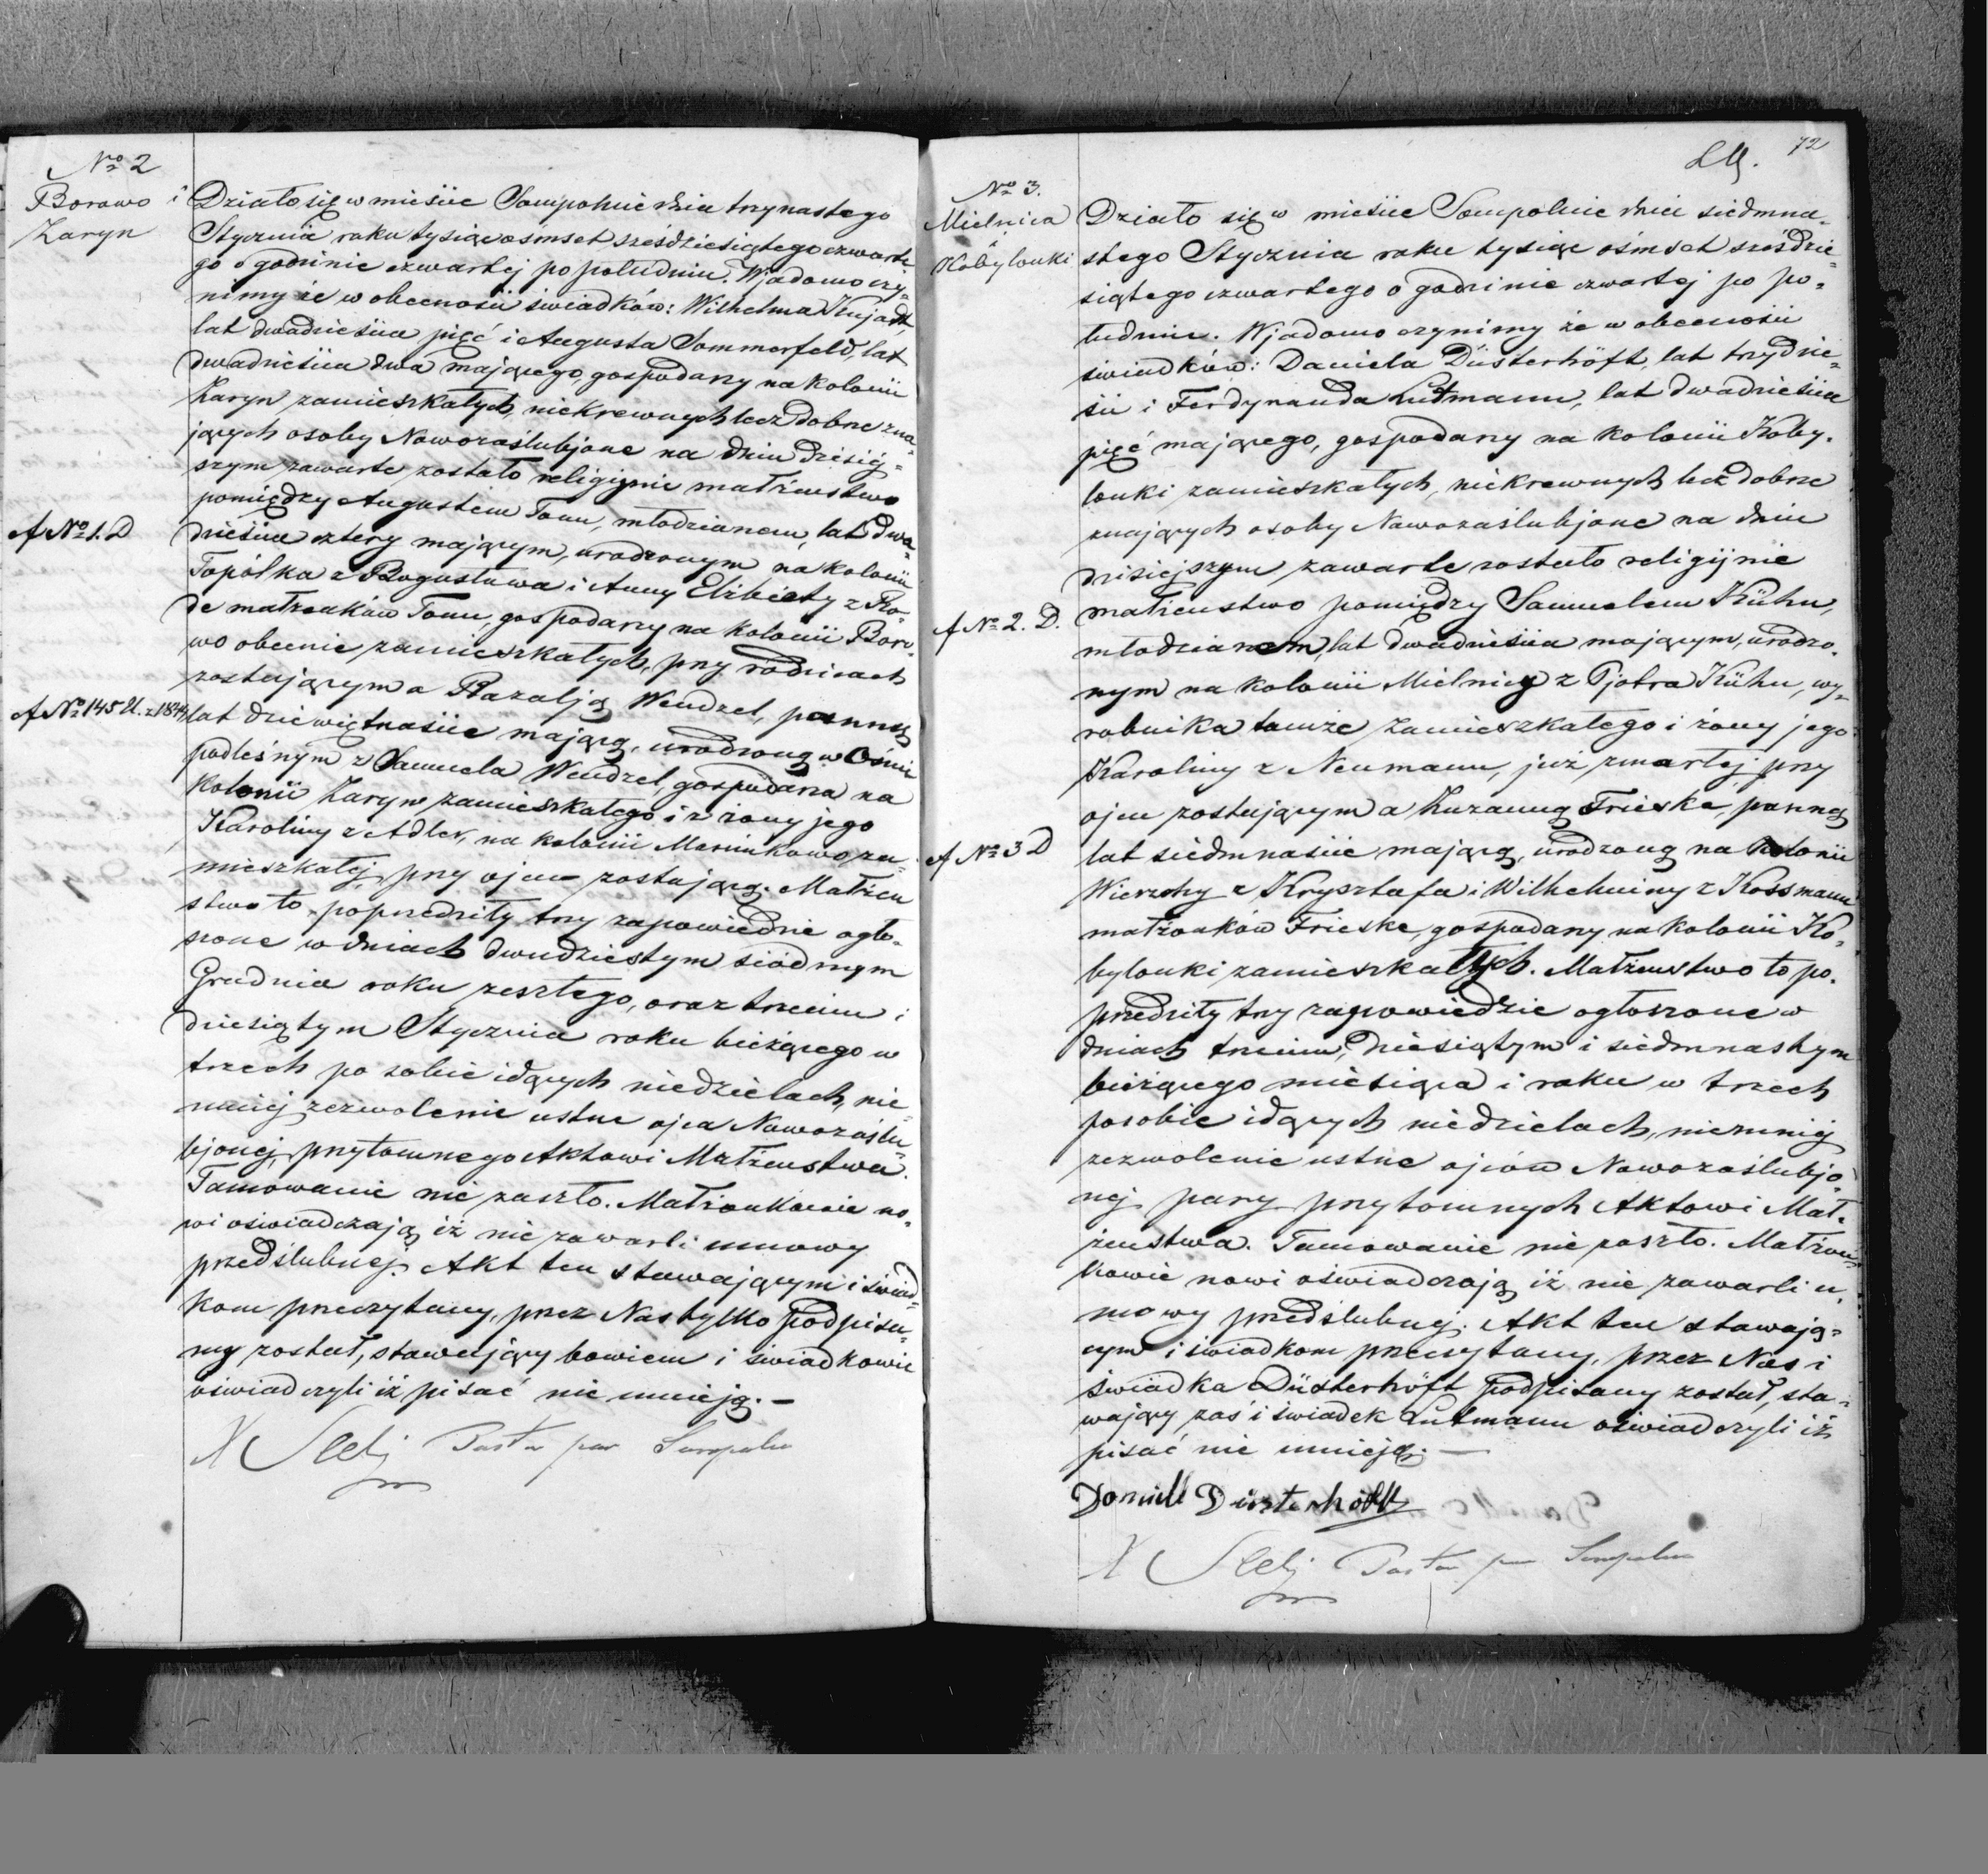 No 2
Borowo i
Zaryn
Działo się w mieście Sompolnie dnia trzynastego
Stycznia roku tysiąc ośmset sześdziesiątego czwarte-
go o godzinie czwartej po południu. Wjadomo czy-
nimy że w obecności świadków: Wilhelma Kujadt,
lat dwadzieścia pięć i Augusta Sommerfeld, lat
dwadzieścia dwa mającego, gospodarzy na kolonii
Zaryn zamieszkałych, niekrewnych lecz dobrze zna-
jących osoby Nowozaślubjone na dniu dzisiej-
szym zawarte zostało religijnie małżeństwo
A No 1. D
pomiędzy Augustem Tonn, młodzianem, lat dwa-
dzieścia cztery mającym, urodzonym na kolonii
Topólka z Bogusława i Anny Elżbiety z Ro-
de małżonków Tonn, gospodarzy na kolonii Boro-
wo obecnie zamieszkałych, przy rodzicach
zostającym a Rozalją Wendzel, panną
A No 145 U. z 1844
lat dziewiętnaście mającą, urodzoną w Ośnie
podleśnym z Samuela Wendzel, gospodarza na
Kolonii Zaryn zamieszkałego i z żony jego
Karoliny z Adler, na kolonii Marjinkowo za-
mieszkałej, przy ojcu zostającą. Małżeń
stwo to poprzedziły trzy zapowiedzie ogło-
szone w dniach dwudziestym siódmym
Grudnia roku zeszłego, oraz trzecim i
dziesiątym Stycznia roku bieżącego w
trzech po sobie idących niedzielach, nie-
mniej zezwolenie ustne ojca Nowozaślu-
bjonej, przytomnego Aktowi Małżeństwa.
Tamowanie nie zaszło. Małżonkowie no-
wi oświadczają iż nie zawarli umowy
przedślubnej. Akt ten stawającym i świad-
kom przeczytany, przez Nas tylko podpisa-
ny został, stawający bowiem i świadkowie
oświadczyli iż pisać nie umieją. —
Pastor par Sompolna
72
No 3.
Mielnica
i
Kobylanki
Działo się w mieście Sompolnie dnia siedmna-
stego Stycznia roku tysiąc ośmset sześdzie-
siątego czwartego o godzinie czwartej po po-
łudniu. Wjadomo czynimy że w obecności
świadków: Daniela Düsterhöft, lat trzydzie-
ści i Ferdynanda Lutmann, lat dwadzieścia
pięć mającego, gospodarzy na kolonii Koby-
lanki zamieszkałych, niekrewnych lecz dobrze
znających osoby Nowozaślubjone na dniu
dzisiejszym zawarte zostało religijnie
A No 2. D.
małżeństwo pomiędzy Samuelem Kühn,
młodzianem, lat dwadzieścia mającym, urodzo-
nym na kolonii Mielnicy z Pjotra Kühn, wy-
robnika tamże zamieszkałego i żony jego
Karoliny z Neumann, już zmarłej, przy
ojcu zostającym a Zuzanną Frieske, panną
A No 3 D
lat siedmnaście mającą, urodzoną na kolonii
Wierzchy z Krysztofa i Wilhelminy z Kossmann
małżonków Frieske, gospodarzy na kolonii Ko-
bylanki zamieszkałych. Małżeństwo to po-
przedziły trzy zapowiedzie ogłoszone w
dniach trzecim, dziesiątym i siedmnastym
bieżącego miesiąca i roku w trzech
posobie idących niedzielach, niemniej
zezwolenie ustne ojców Nowozaślubjo-
nej pary przytomnych Aktowi Mał-
żeństwa. Tamowanie nie zaszło. Małżon-
kowie nowi oświadczają iż nie zawarli u-
mowy przedślubnej. Akt ten stawają-
cym i świadkom przeczytany, przez Nas i
świadka Düsterhöft podpisany został, sta-
wający zaś i świadek Lutmann oświadczyli iż
pisać nie umieją. —
Daniell Düsterhöfft
Pastor par Sompolna